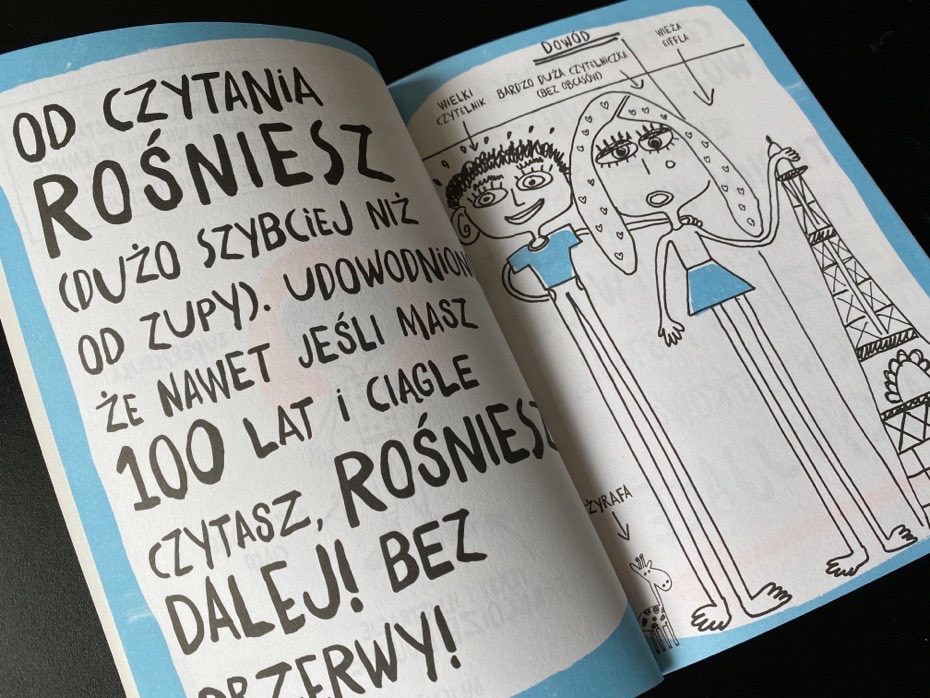 OD CZYTANIA
ROŚNIESZ
(DUŻO SZYBCIEJ NIŻ
OD ZUPY). UDOWODNION
ŻE NAWET JEŚLI MASZ
100 LAT i CIĄGLE
CZYTASZ, ROŚNIESZ
DALEJ! BEZ
PRZERWY!
DOWÓD
WIELKI
CZYTELNIK
BARDZO DUŻA CZYTELNICZKA
(BEZ OBCASÓW)
WIEŻA
EIFFLA
ŻYRAFA